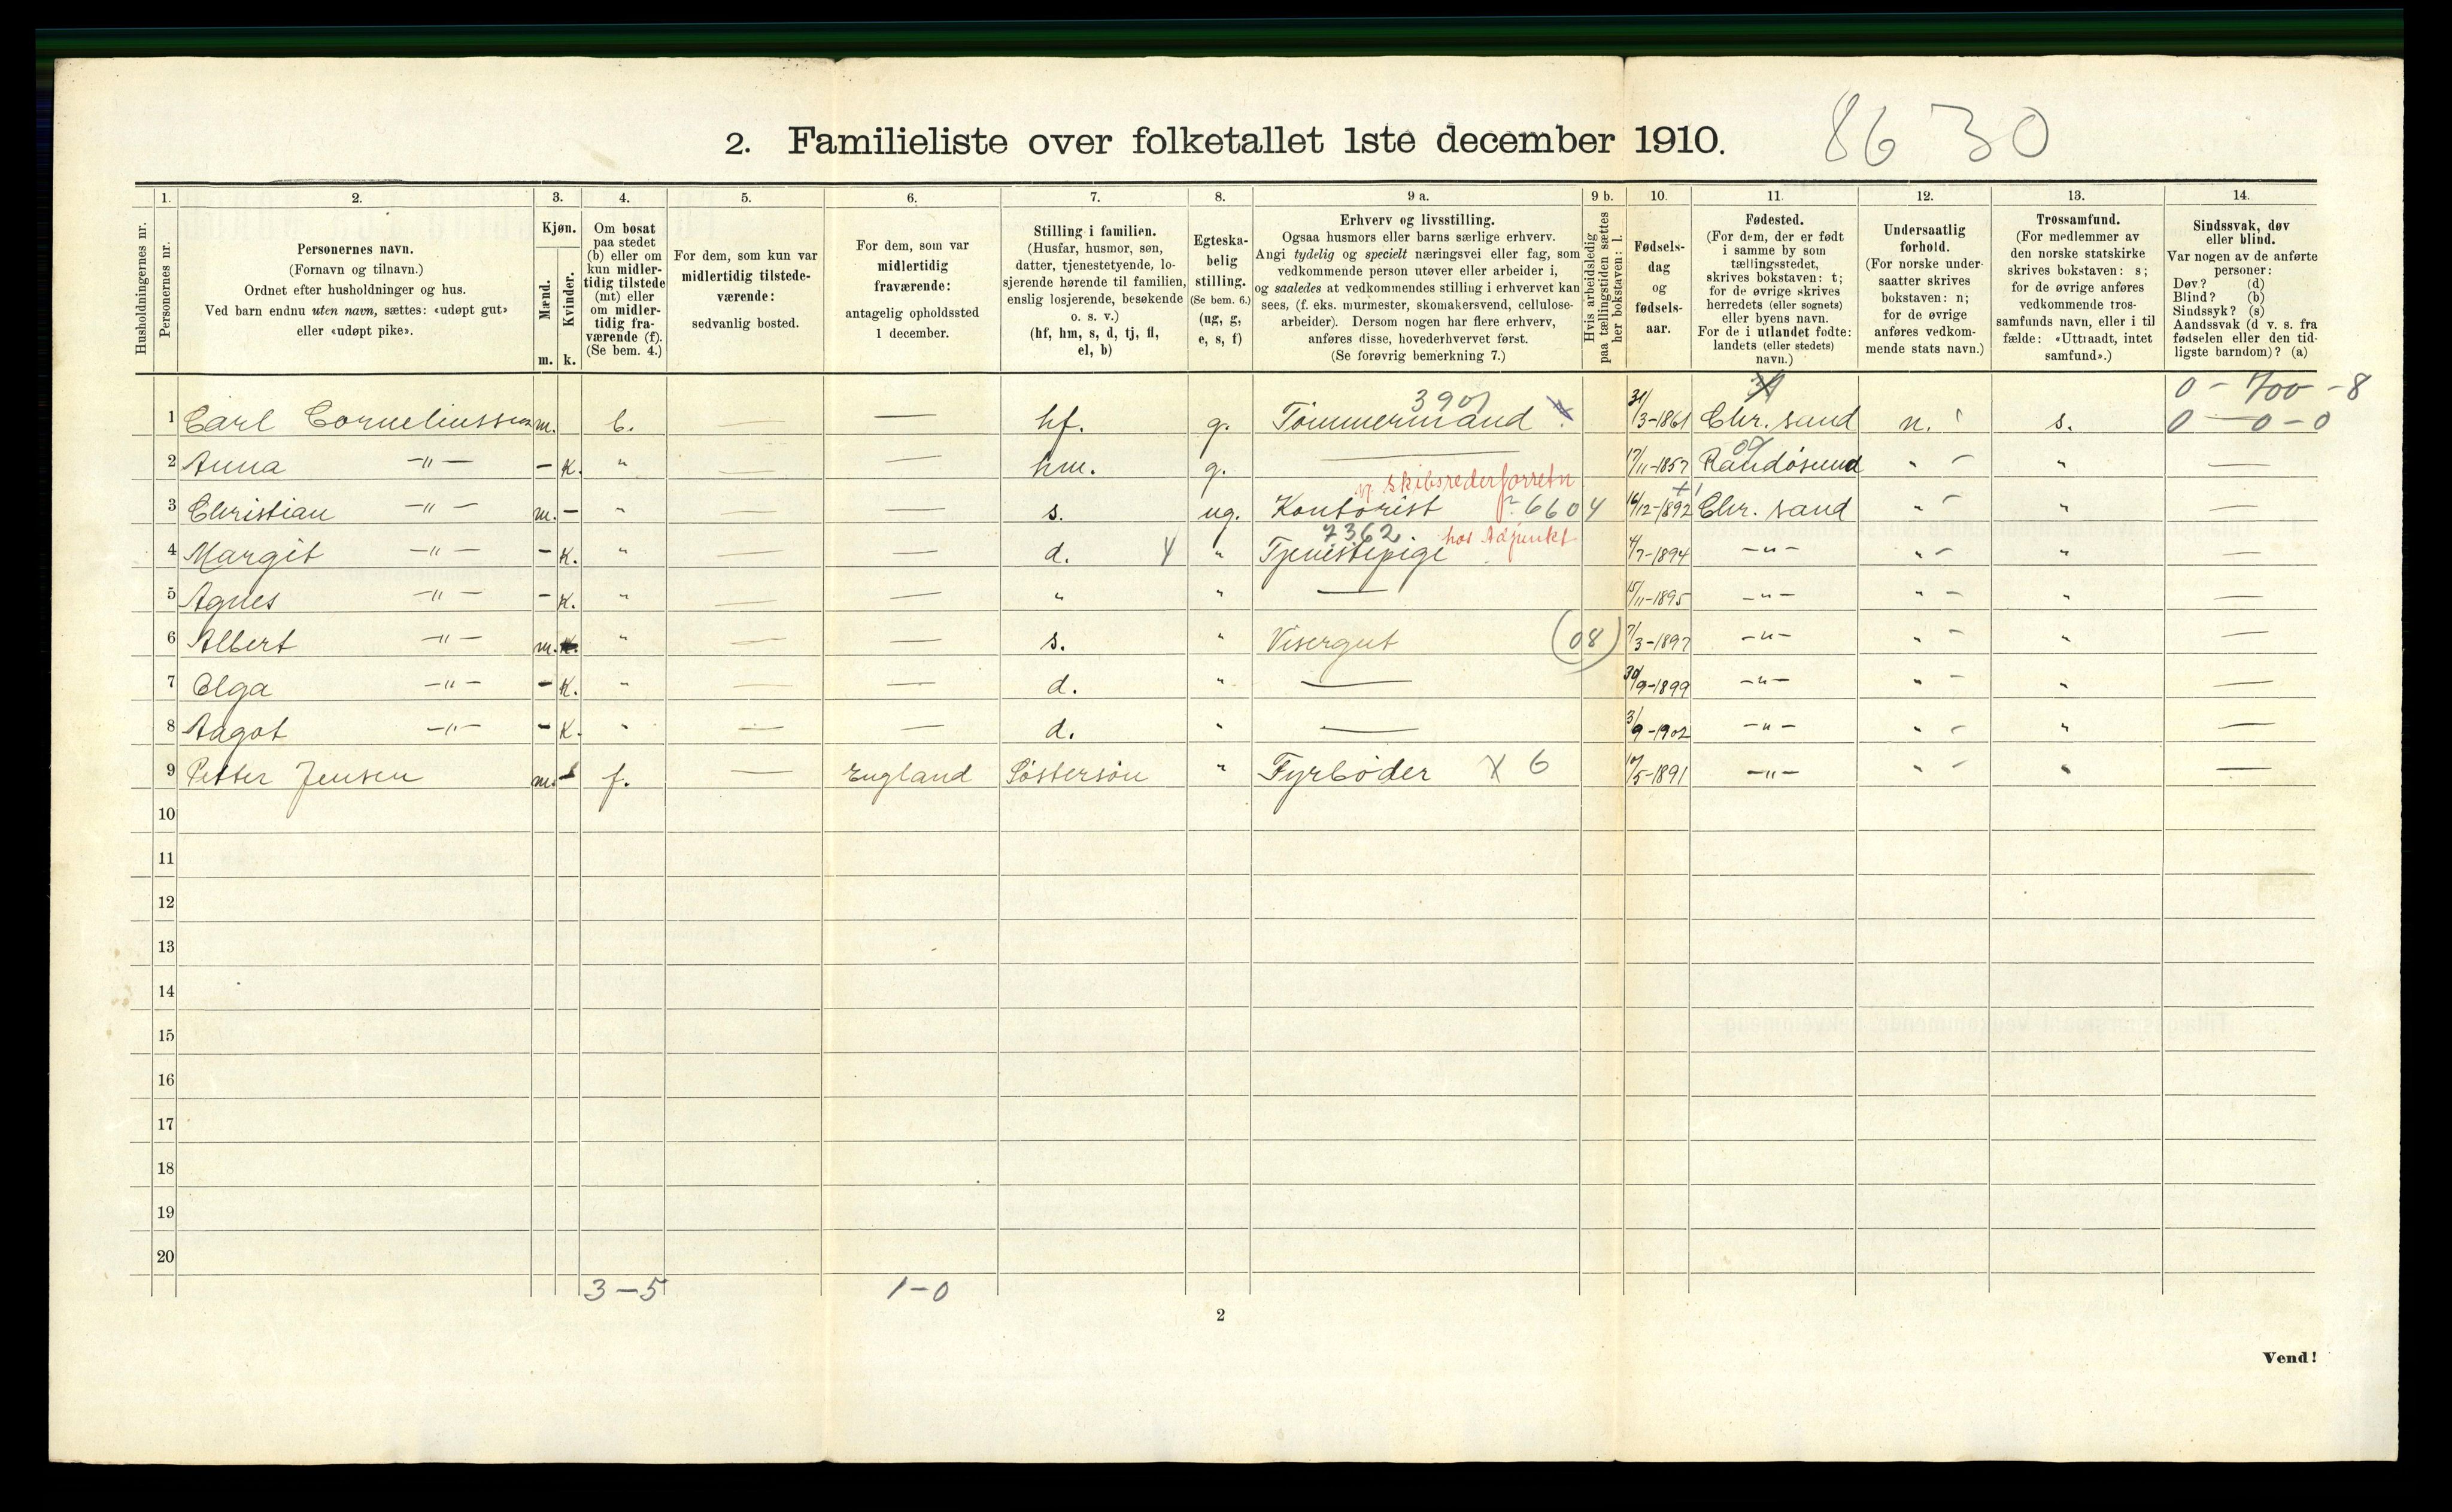 86 30
2. Familieliste over folketallet 1ste december 1910.
Husholdningernes nr.
1. Personernes nr.
2. Personernes navn.
(Fornavn og tilnavn.)
Ordnet efter husholdninger og hus.
Ved barn endnu uten navn, sættes: «udøpt gut»
eller «udøpt pike».
3. Kjøn.
Mænd. m.
Kvinder. k.
4. Om bosat
paa stedet
(b) eller om
kun midler-
tidig tilstede
(mt) eller
om midler-
tidig fra-
værende (f).
(Se bem. 4.)
5. For dem, som kun var
midlertidig tilstede-
værende:
sedvanlig bosted.
6. For dem, som var
midlertidig
fraværende:
antagelig opholdssted
1 december.
7. Stilling i familien.
(Husfar, husmor, søn,
datter, tjenestetyende, lo-
sjerende hørende til familien,
enslig losjerende, besøkende
o. s. v.)
(hf, hm, s, d, tj, fl,
el, b)
8. Egteska-
belig
stilling.
(Se bem. 6.)
(ug, g,
e, s, f)
9 a. Erhverv og livsstilling.
Ogsaa husmors eller barns særlige erhverv.
Angi tydelig og specielt næringsvei eller fag, som
vedkommende person utøver eller arbeider i,
og saaledes at vedkommendes stilling i erhvervet kan
sees, (f. eks. murmester, skomakersvend, cellulose-
arbeider). Dersom nogen har flere erhverv,
anføres disse, hovederhvervet først.
(Se forøvrig bemerkning 7.)
9 b. Hvis arbeidsledig
paa tællingstiden sættes
her bokstaven: l.
10. Fødsels-
dag
og
fødsels-
aar.
11. Fødested.
(For dem, der er født
i samme by som
tællingsstedet,
skrives bokstaven: t;
for de øvrige skrives
herredets (eller sognets)
eller byens navn.
For de i utlandet fødte:
landets (eller stedets)
navn.)
12. Undersaatlig
forhold.
(For norske under-
saatter skrives
bokstaven: n;
for de øvrige
anføres vedkom-
mende stats navn.)
13. Trossamfund.
(For medlemmer av
den norske statskirke
skrives bokstaven: s;
for de øvrige anføres
vedkommende tros-
samfunds navn, eller i til
fælde: «Uttraadt, intet
samfund».)
14. Sindssvak, døv
eller blind.
Var nogen av de anførte
personer:
Døv? (d)
Blind? (b)
Sindssyk? (s)
Aandssvak (d v. s. fra
fødselen eller den tid-
ligste barndom)? (a)
3901 0 - 400 - 8
1 Carl Corneliussen m. b. — — hf. g. Tömmermand 31/3-1861 Chr. sand n. s. 0 — 0 - 0
2 Anna —"— - k. " — — hm. g. — 17/11-1857 Randösund " " —
skibsrederforretn
3 Christian —"— m. - " — — s. ug. Kontorist 6604 16/12-1892 Chr. sand " "
7362 hos Adjunkt
4 Margit —"— - k. " — — d. " Tjenestepige 4/7-1894 —"— " " —
5 Agnes —"— - k. " — — " " — 15/11-1895 —"— " " —
6 Albert —"— m. " — — s. " Visergut (08) 7/3-1897 —"— " " —
7 Olga —"— - k. " — — d. " — 30/9-1899 —"— " " —
8 Aagot —"— - k. " — — d. " — 3/9-1902 —"— " " —
9 Petter Jensen m. - f. — England Söstersön " Fyrböder X 6 17/5-1891 —"— " " —
10
11
12
13
14
15
16
17
18
19
20
3 - 5 1 - 0
2
Vend!